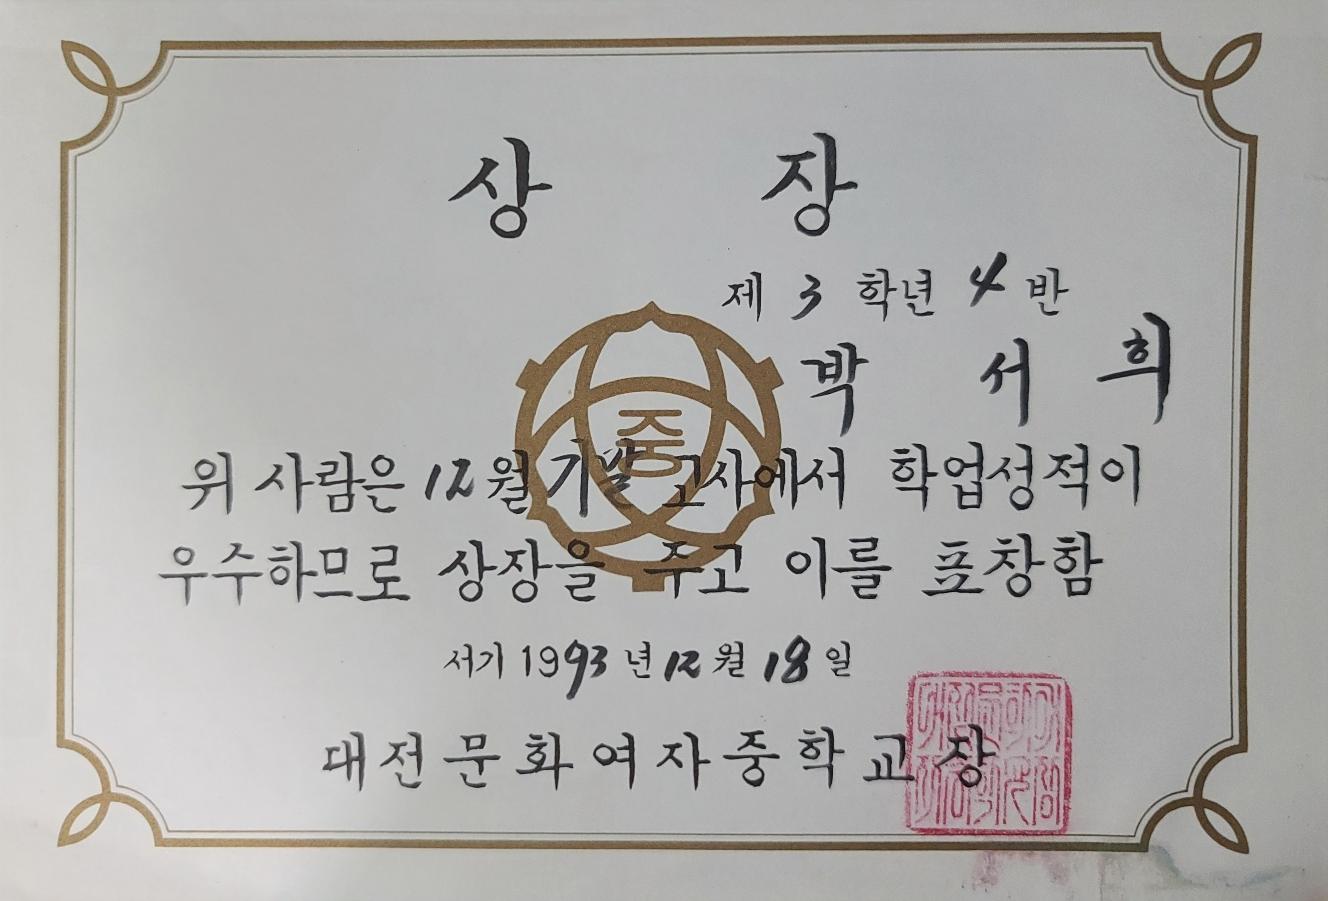 상 장
제 3 학년 4 반
박 서 희
위 사람은 12월 기말 고사에서 학업성적이
우수하므로 상장을 주고 이를 표창함
서기 1993 년 12 월 18 일
대전문화여자중학교장
중